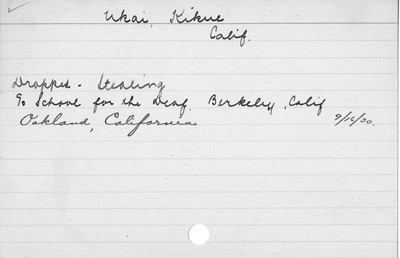 Ukai, Kikue
Calif.
Dropped - Stealing
% School for the Deaf, Berkeley, Calif
Oakland, California 9/16/30.